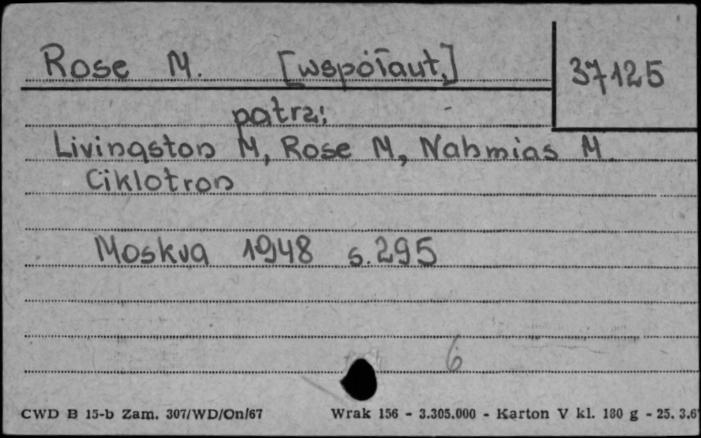 Rose M. [współaut.]
37125
patrz:
Livingston M, Rose M, Nahmias M.
Ciklotron
Moskva 1948 s. 295
6
CWD B 15-b Zam. 307/WD/On/67
Wrak 156 - 3.305.000 - Karton V kl. 180 g - 25. 3.6